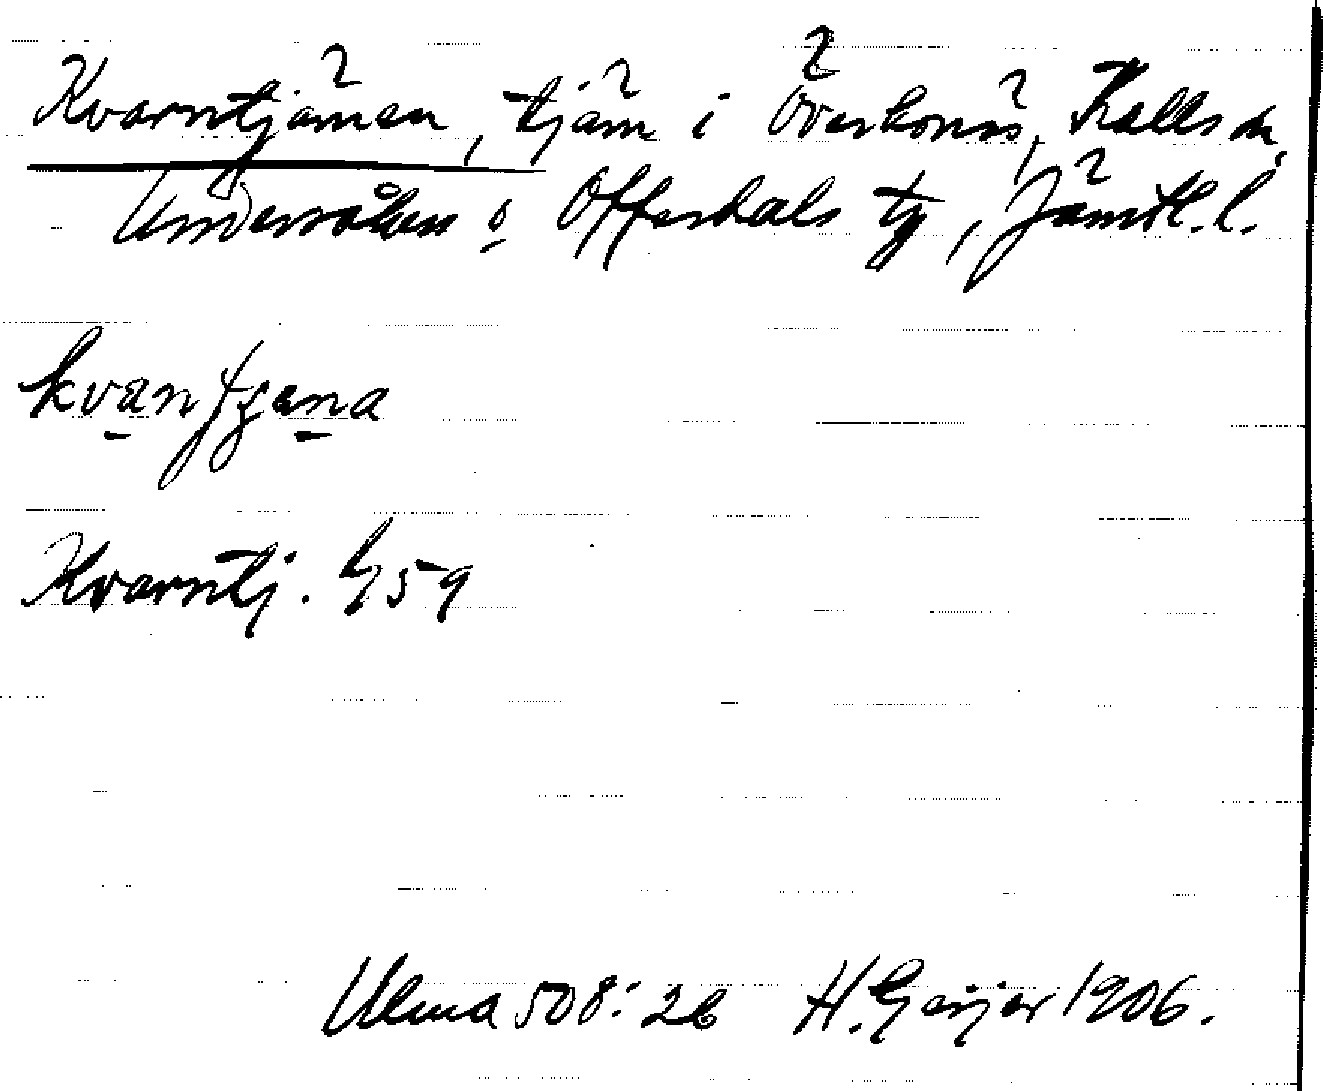 Kvarntjärnen, tjärn i Överhonäs, Kalls sn,
Undersåkers o Offerdals tg, Jämtl. l.
Kvarntj. G 59
Ulma 508: 26 H. Geijer 1906.